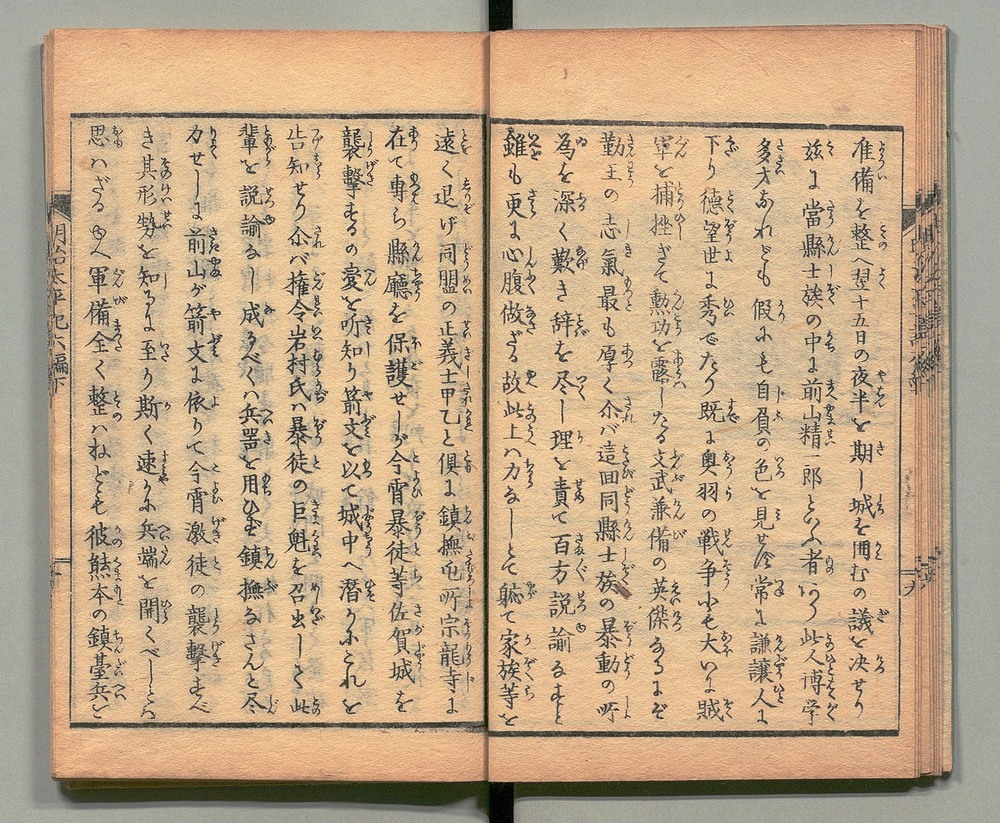 准備を整へ翌十五日の夜半を期し城を囲むの議を决せり
玆に當縣士族の中に前山精一郎といふ者あり此人博学
多才なれども假にも自負の色を見せず常に謙讓人に
下り德望世に秀でたり既に奥羽の戦争にも大いに賊
軍を捕挫ぎて勲功を露したる文武兼備の英傑なるにぞ
勤王の志氣最も厚く尒バ這回同縣士族の暴動の所
為を深く歎き辞を尽し理を責て百方説諭なすと
雖も更に心腹做ざる故此上ハ力なしとて躮て家族等を
遠く退け同盟の正義士甲乙と俱に鎮撫屯所宗龍寺に
在て専ら縣廳を保護せしが今宵暴徒等佐賀城を
襲撃するの變を听知り箭文を以て城中へ潜かにこれを
告知せり尒バ権令岩村氏ハ暴徒の巨魁を召出して此
輩を説諭なし成るべくハ兵器を用ひず鎮撫なさんと尽
力せしに前山が箭文に依りて今宵激徒の襲撃すべ
き其形勢を知るに至り斯く速かに兵端を開くべしとハ
思ハざるゆへ軍備全く整ハねども彼熊本の鎮臺兵を
明治太平記六編下